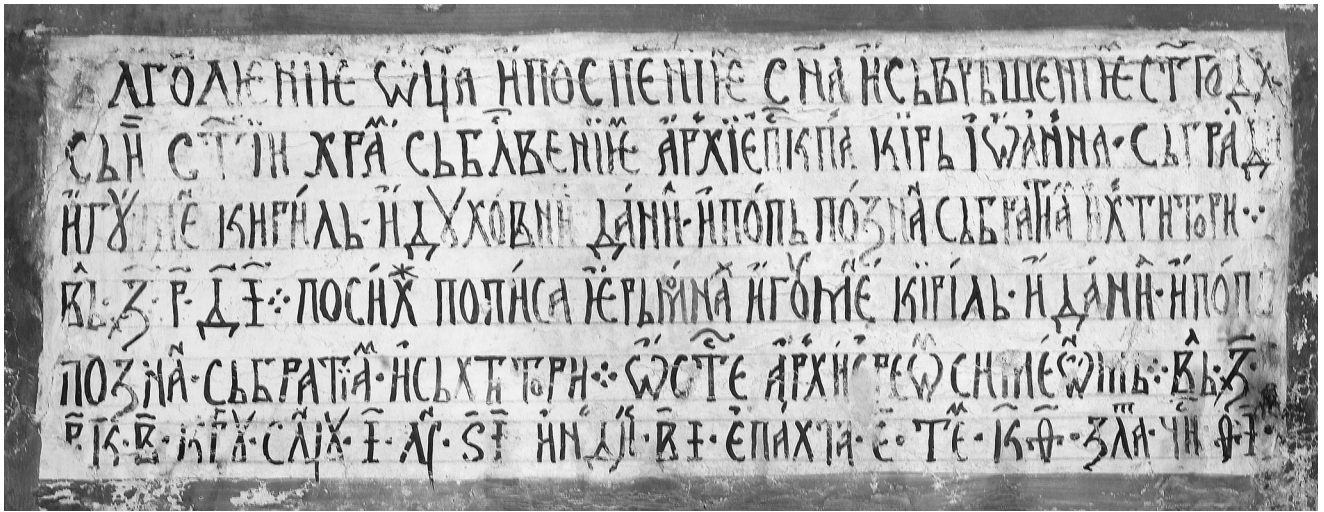 лголенїиѥ ѡ҃ца и поспенїиѥ с҃на и съврьшенїиѥ ст҃го дх
сьи ст҃їи храⷨ сьбл҃венїиѥ архїеп҃кпа кїрь їѡанна · сьград
игꙋмне кириль · и дꙋховни дани · и попь позна сьбратїа и хтитори ·:·
вь · з҃ · р҃ · д҃ · і҃ ·:· посиⷯ пописа їерьмⷩна игоⷨе кїріль · и дани · и поп
позна · сьбратїа · и сь хтитори ·:· ѿ ст҃е архиереѡ сиⷨеѡмь ·:· вь · з҃ ·
р҃ · к҃ · в҃ · крꙋ · слнцꙋ · і҃ · лꙋ · ѕ҃і · инди · в҃і · епахта · е҃ · теⷨ · к҃ · ѳ҃ · зла · чи · ѳ҃і ·